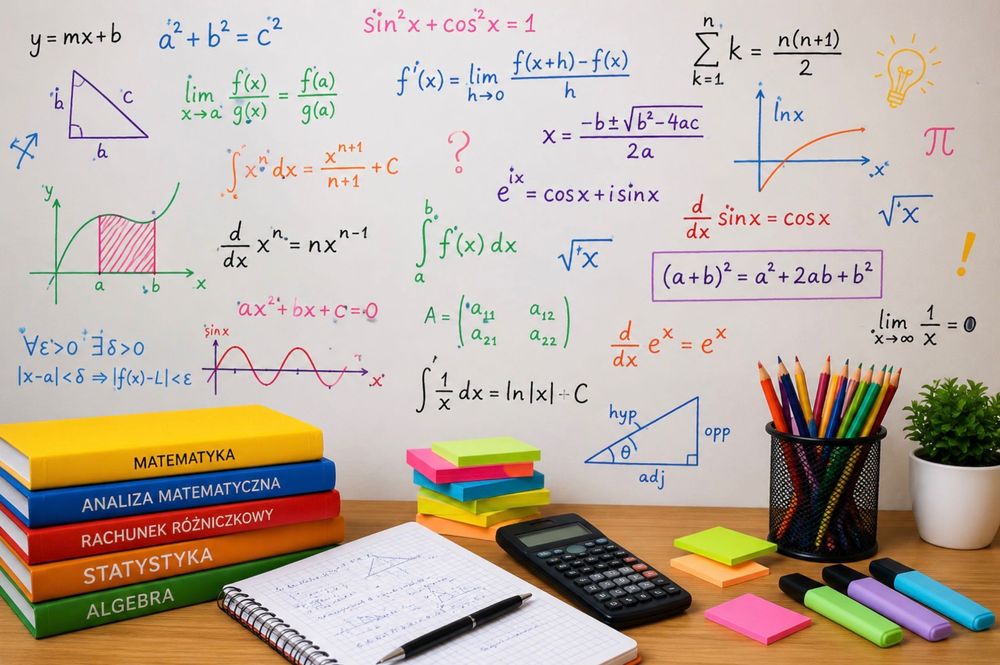 y = mx + b
a² + b² = c²
sin²x + cos²x = 1
n
∑ k = n(n+1)/2
k=1
b
c
a
lim f(x)/g(x) = f(a)/g(a)
x→a
f'(x) = lim (f(x+h) − f(x))/h
h→0
x = (−b ± √(b² − 4ac))/2a
ln x
x
π
?
∫ xⁿ dx = xⁿ⁺¹/(n+1) + C
e^(ix) = cosx + i sinx
d/dx sinx = cosx
√x
!
y
a
b
x
d/dx xⁿ = nxⁿ⁻¹
b
∫ f'(x) dx
a
√x
(a+b)² = a² + 2ab + b²
ax² + bx + c = 0
A = (a₁₁ a₁₂
a₂₁ a₂₂)
d/dx eˣ = eˣ
lim 1/x = 0
x→∞
∀ε>0 ∃δ>0
|x−a| < δ ⇒ |f(x)−L| < ε
sin x
x
∫ 1/x dx = ln|x| + C
hyp
θ
opp
adj
MATEMATYKA
ANALIZA MATEMATYCZNA
RACHUNEK RÓŻNICZKOWY
STATYSTYKA
ALGEBRA